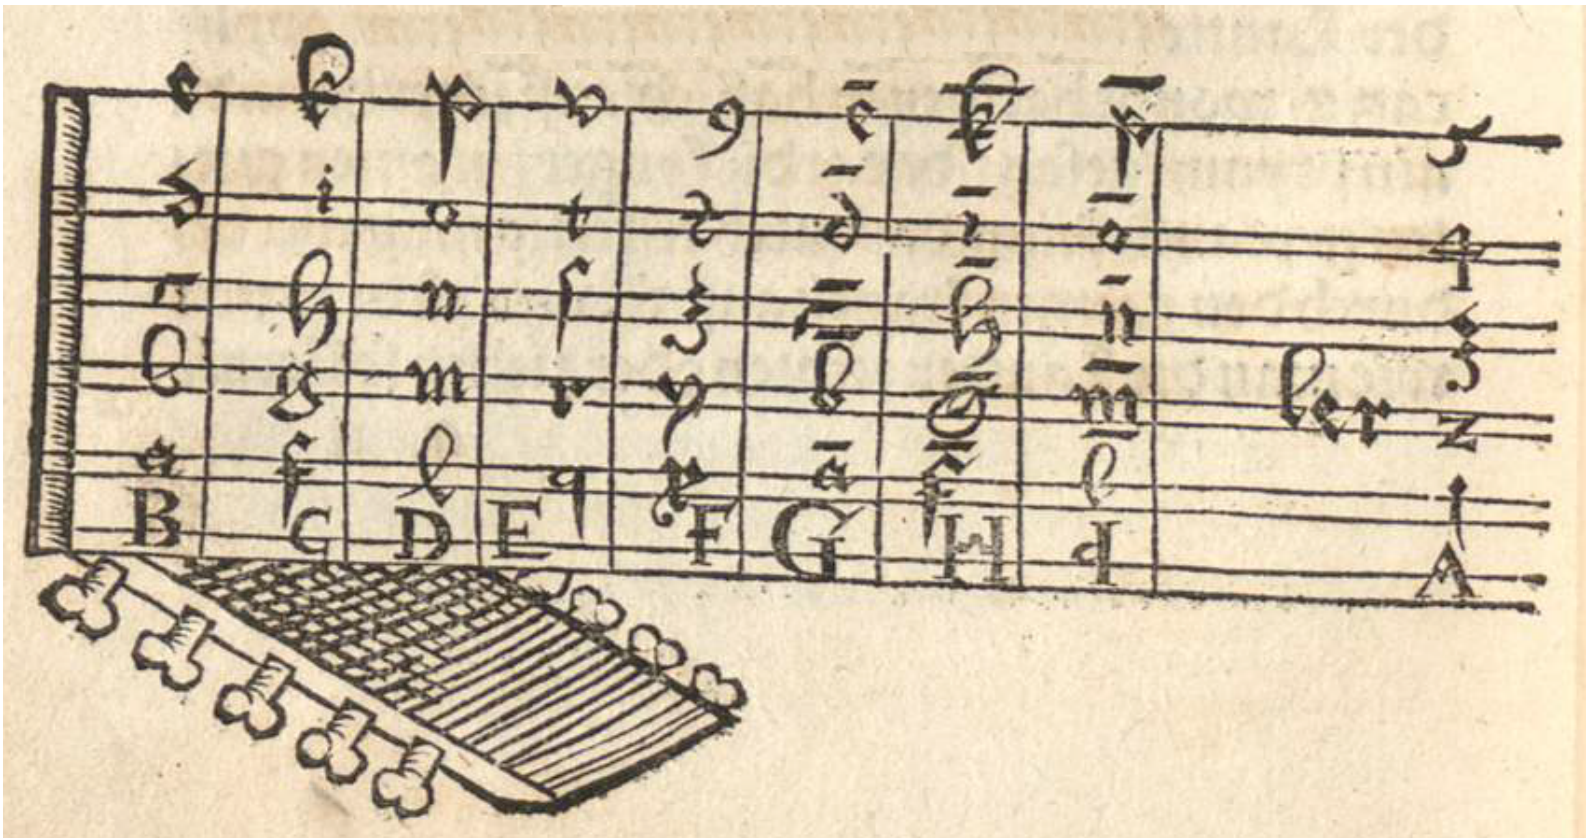 e k p v 9 ē k̄ p̄ 5
d i o t ⁊ d̄ ī ō 4
c h n s z c̄ h̄ n̄ 3
b g m r y b̄ ḡ m̄ ler 2
a f l q x ā f̄ l̄ 1
B C D E F G H I A